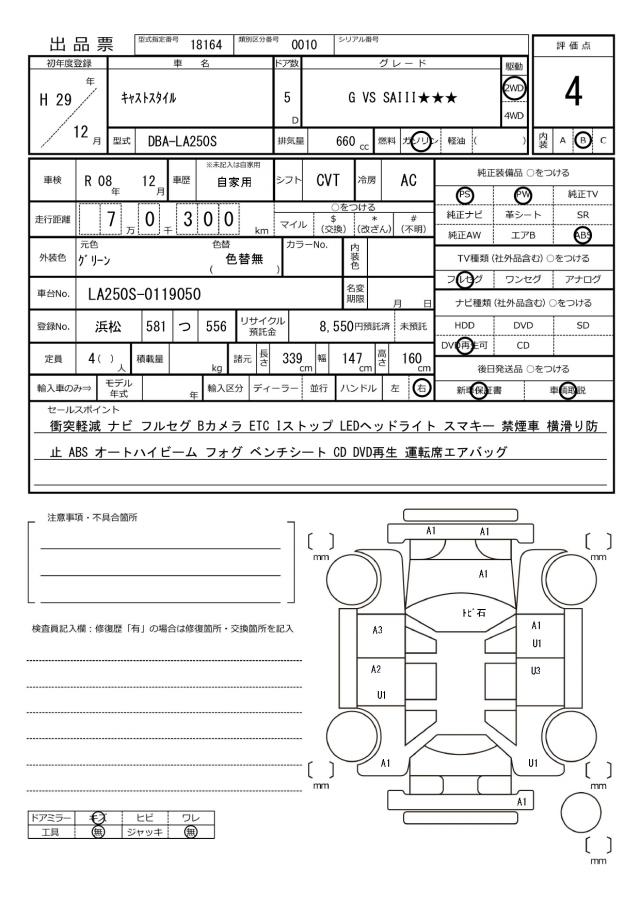 出品票 型式指定番号 18164 類別区分番号 0010 シリアル番号
評価点
4
内装 A B C
初年度登録 車名 ドア数 グレード 駆動
H 29 年 12 月 キャストスタイル 5 D G VS SAIII★★★ 2WD 4WD
型式 DBA-LA250S 排気量 660 cc 燃料 ガソリン 軽油 ( )
車検 R 08 年 12 月 車歴 ※未記入は自家用 自家用 シフト CVT 冷房 AC
走行距離 7 0 3 0 0 万 千 km
○をつける
マイル $(交換) *(改ざん) #(不明)
外装色 元色 グリーン 色替 ( 色替無 ) カラーNo. 内装色
車台No. LA250S-0119050 名変期限 月 日
登録No. 浜松 581 つ 556 リサイクル預託金 8,550円預託済 未預託
定員 4( ) 人 積載量 kg 諸元 長さ 339 cm 幅 147 cm 高さ 160 cm
輸入車のみ⇒ モデル年式 年 輸入区分 ディーラー 並行 ハンドル 左 右
純正装備品 ○をつける
PS PW 純正TV
純正ナビ 革シート SR
純正AW エアB ABS
TV種類(社外品含む)○をつける
フルセグ ワンセグ アナログ
ナビ種類(社外品含む)○をつける
HDD DVD SD
DVD再生可 CD
後日発送品 ○をつける
新車保証書 車輌取説
セールスポイント
衝突軽減 ナビ フルセグ Bカメラ ETC Iストップ LEDヘッドライト スマキー 禁煙車 横滑り防
止 ABS オートハイビーム フォグ ベンチシート CD DVD再生 運転席エアバッグ
注意事項・不具合箇所
検査員記入欄:修復歴「有」の場合は修復箇所・交換箇所を記入
ドアミラー キズ ヒビ ワレ
工具 無 ジャッキ 無
A1 A1
mm mm
A1
トビ石
A3 A1
U1
A2 U3
U1
A1 U1
mm mm
A1
mm